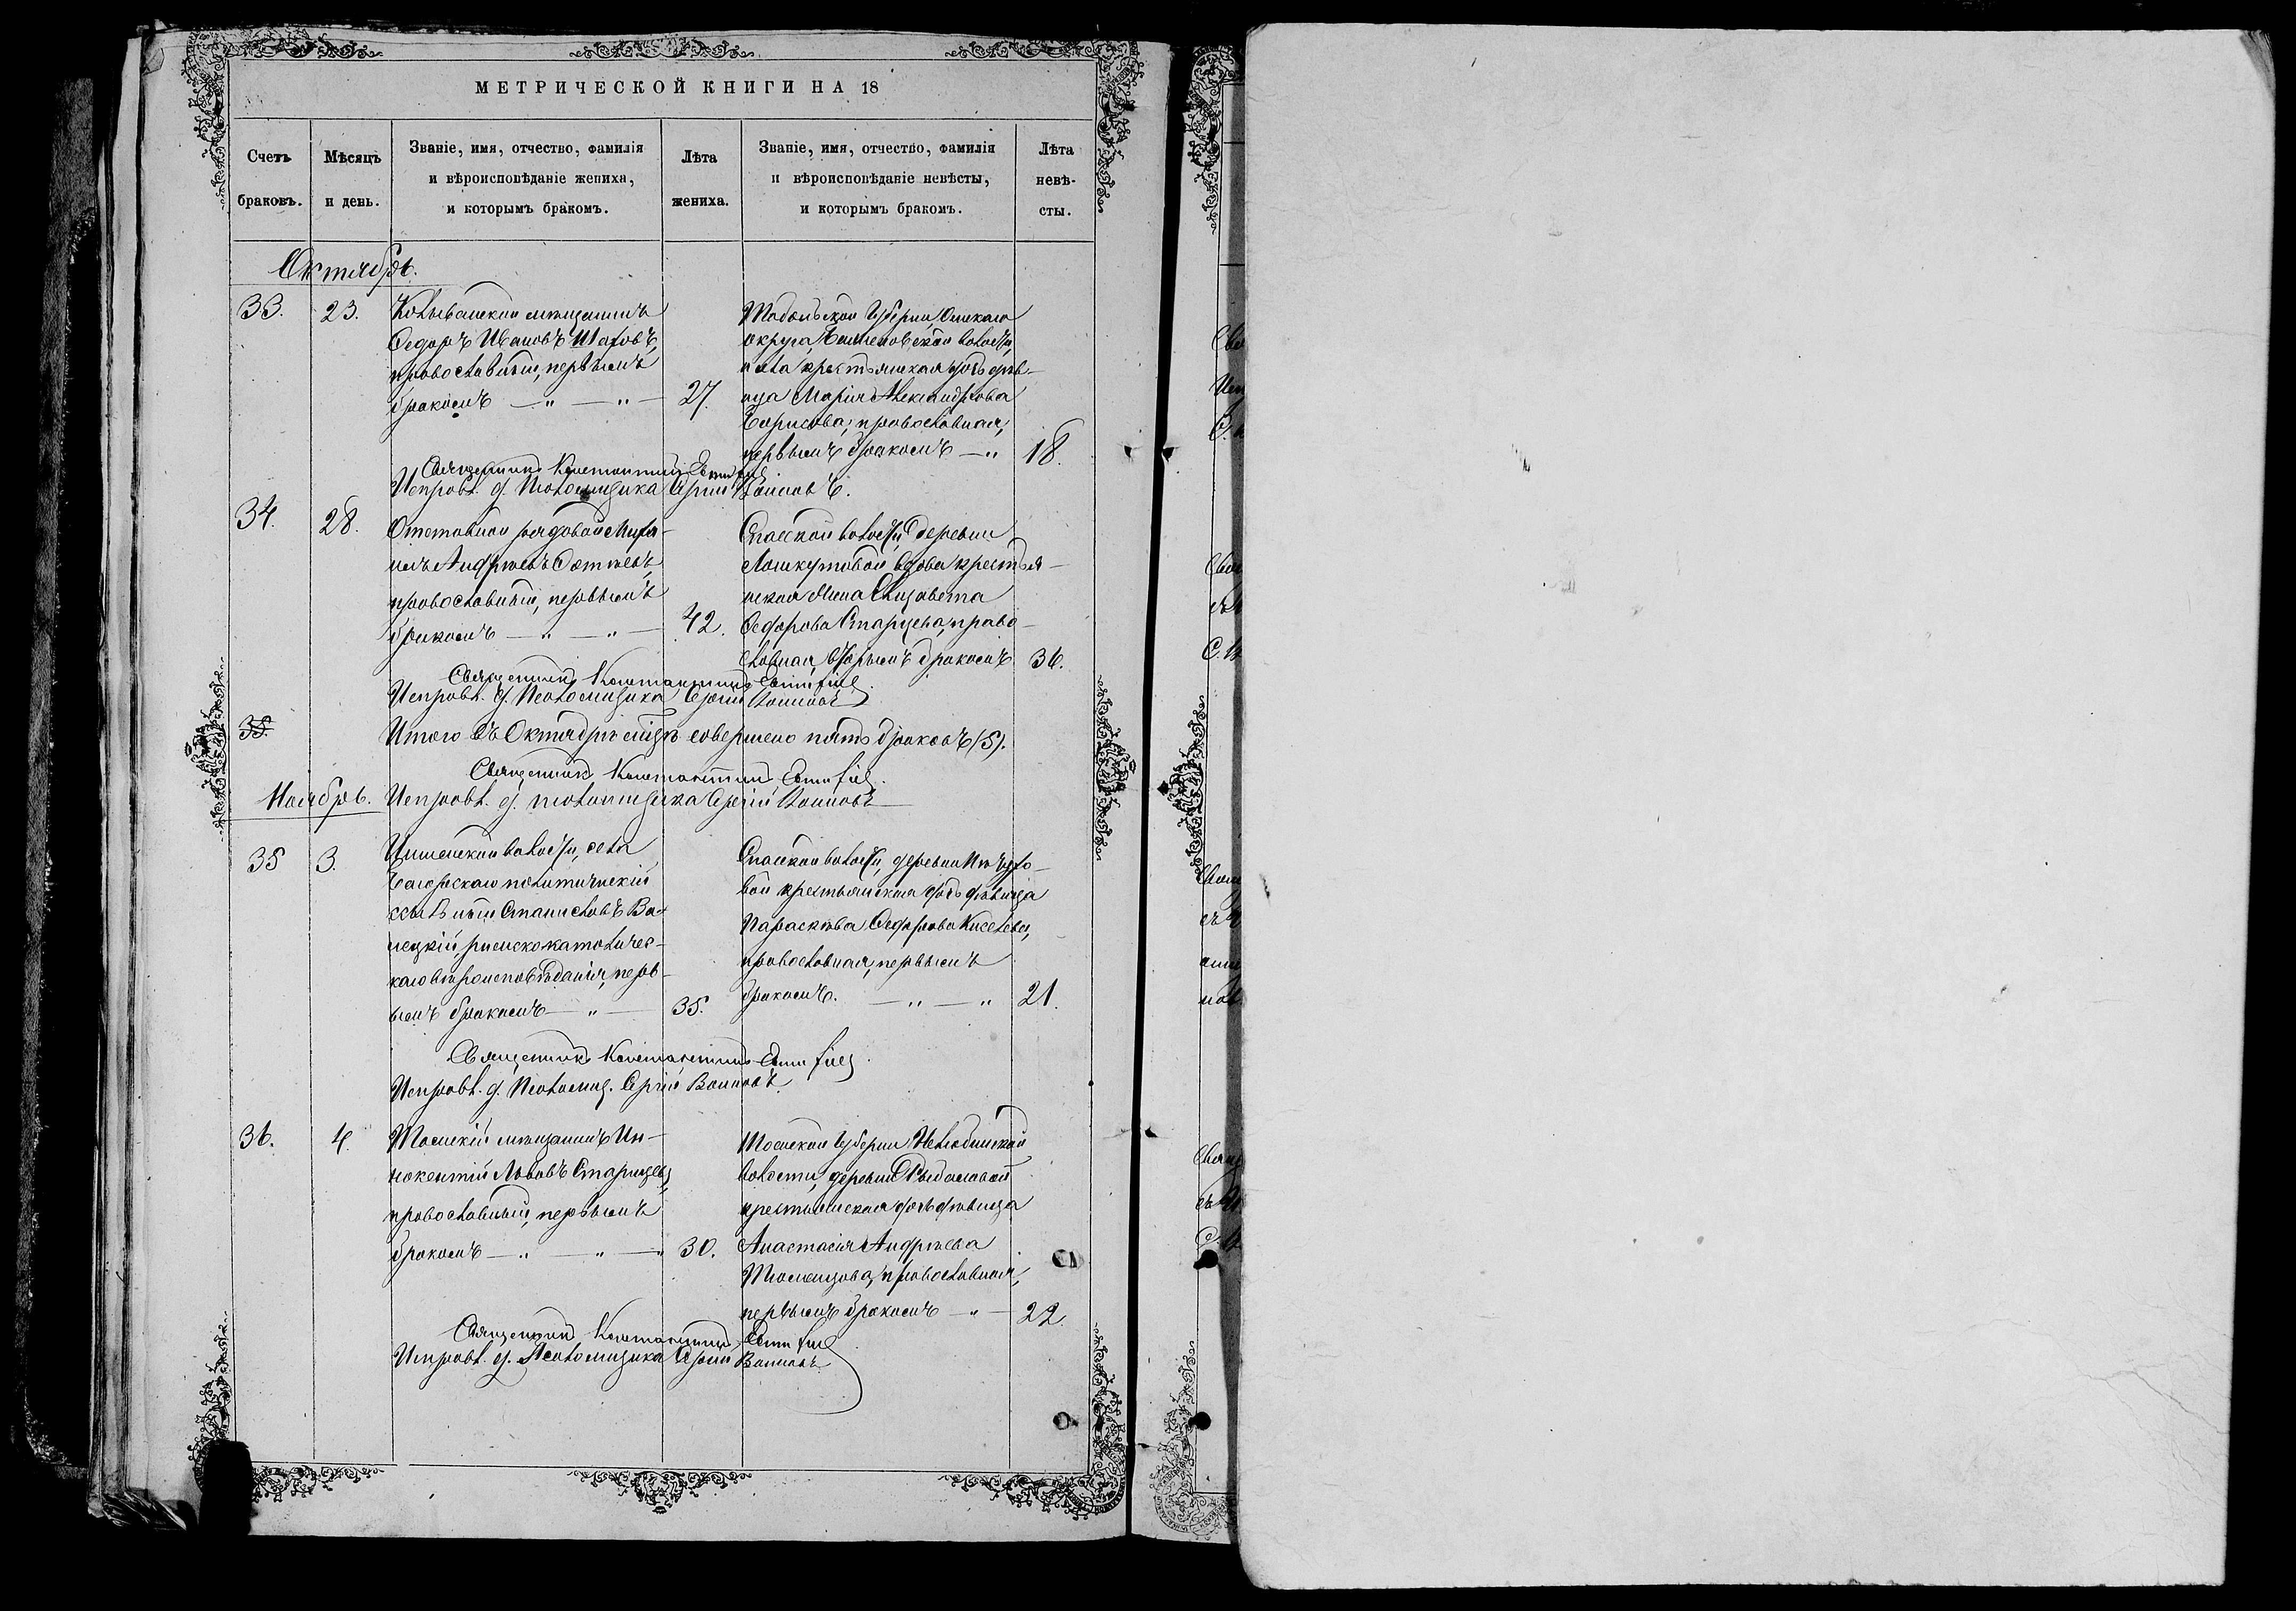 МЕТРИЧЕСКОЙ КНИГИ НА 18
Счетъ браковъ.
Мѣсяцъ и день.
Званіе, имя, отчество, фамилія
и вѣроисповѣданіе жениха,
и которымъ бракомъ.
Лѣта жениха.
Званіе, имя, отчество, фамилія
и вѣроисповѣданіе невѣсты,
и которымъ бракомъ.
Лѣта невѣ-
сты.
Октябрь.
33. 23.
Колыванской мѣщанинъ
Ѳедоръ Ивановъ Шаховъ,
православный, первымъ
бракомъ — „ — „ — 27.
Тобольской Губерніи, Омскаго
округа, волости,
села крестьянская дочь дѣв-
ица Марія Александрова
Борисова, православная,
первымъ бракомъ — „ 18.
Священникъ Константинъ
Исправл. д. Псаломщика Сергій Воиновъ.
34. 28.
Отставной рядовой Миха-
илъ Андреевъ
православный, первымъ
бракомъ — „ — „ — 42.
Спасской волости, деревни
вдова крестья-
нская жена Елизавета
Ѳедорова Старцева, право-
славная, вторымъ бракомъ 36.
Священникъ Константинъ
Исправл. д. Псаломщика Сергій Воиновъ
35.
Итого въ Октябрѣ мѣцѣ совершено пять браковъ (5).
Священникъ Константинъ
Ноябрь.
Исправл. д. псаломщика Сергій Воиновъ
35 3.
волости, села
политическій
ссыльный Станиславъ Ва-
лецкій, римскокатоличес-
каго вѣроисповѣданія, перв-
ымъ бракомъ — „ — 35.
Спасской волости, деревни
крестьянская дочь дѣвица
Параскева Ѳедорова Киселева,
православная, первымъ
бракомъ. — „ — „ 21.
Священникъ Константинъ
Исправл. д. Псаломщ. Сергій Воиновъ.
36. 4.
Томскій мѣщанинъ Ин-
нокентій Львовъ Старцевъ,
православный, первымъ
бракомъ — „ — „ — „ 30.
Томской Губерніи Нелюбинской
волости, деревни Рыбаловой
крестьянская дочь дѣвица
Анастасія Андреева
православная,
первымъ бракомъ — „ — 22.
Священникъ Константинъ
Исправл. д. Псаломщика Сергій Воиновъ.